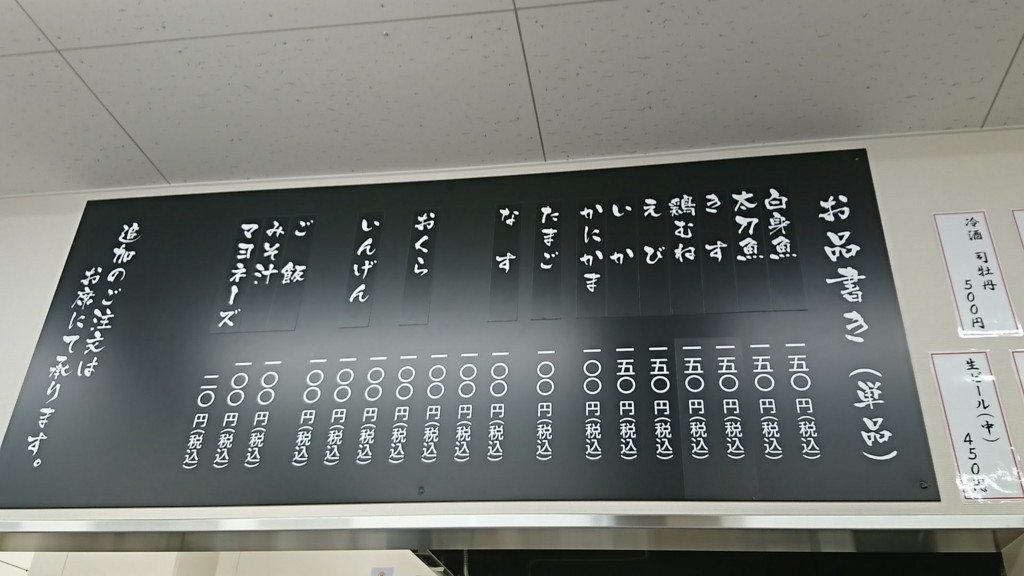 お品書き（単品）
白身魚 一五〇円（税込）
太刀魚 一五〇円（税込）
きす 一五〇円（税込）
鶏むね 一五〇円（税込）
えび 一五〇円（税込）
いか 一五〇円（税込）
かにかま 一〇〇円（税込）
たまご 一〇〇円（税込）
なす 一〇〇円（税込）
一〇〇円（税込）
一〇〇円（税込）
おくら 一〇〇円（税込）
一〇〇円（税込）
いんげん 一〇〇円（税込）
一〇〇円（税込）
ご飯 一〇〇円（税込）
みそ汁 一〇〇円（税込）
マヨネーズ 二〇円（税込）
追加のご注文は
お席にて承ります。
冷酒 司牡丹
500円
生ビール（中）
450円